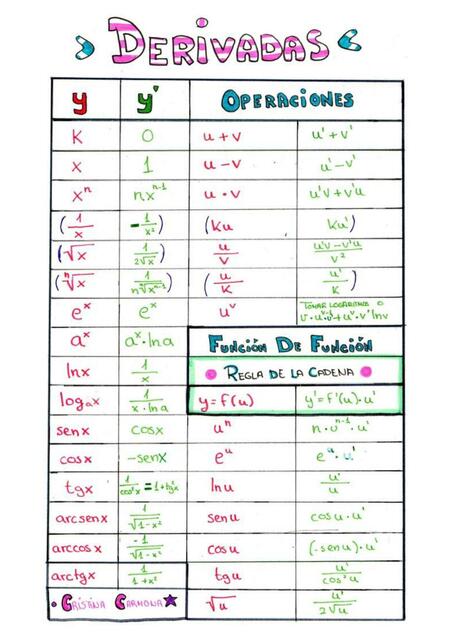 DERIVADAS
y y' OPERACIONES
K 0 u+v u'+v'
x 1 u-v u'-v'
xⁿ nxⁿ⁻¹ u·v u'v+v'u
(1/x -1/x²) (Ku Ku')
(√x 1/2√x) u/v u'v-v'u/v²
(ⁿ√x 1/n ⁿ√xⁿ⁻¹) (u/K u'/K)
eˣ eˣ uᵛ TOMAR LOGARITMOS O
aˣ aˣ·lna FUNCIÓN DE FUNCIÓN
lnx 1/x REGLA DE LA CADENA
logₐx 1/x·lna y=f(u) y'=f'(u)·u'
senx cosx uⁿ n·uⁿ⁻¹·u'
cosx -senx eᵘ eᵘ·u'
tgx 1/cos²x=1+tg²x lnu u'/u
arcsenx 1/√1-x² senu cosu·u'
arccosx -1/√1-x² cosu (-senu)·u'
arctgx 1/1+x² tgu u'/cos²u
CRISTINA CARMONA √u u'/2√u